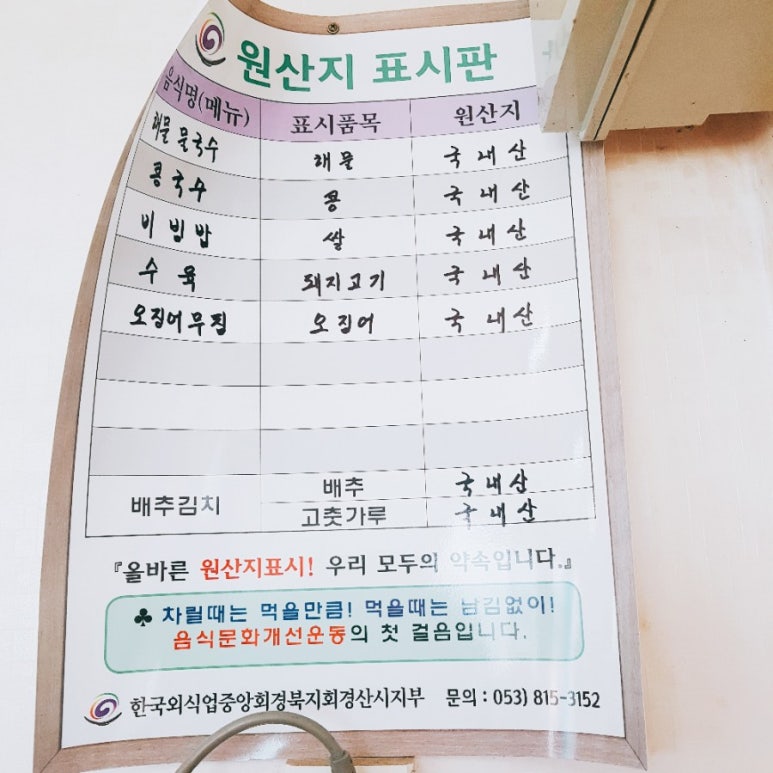 원산지 표시판
음식명(메뉴) 표시품목 원산지
해물 물국수 해물 국내산
콩국수 콩 국내산
비빔밥 쌀 국내산
수육 돼지고기 국내산
오징어무침 오징어 국내산
배추김치 배추 국내산
고춧가루 국내산
『올바른 원산지표시! 우리 모두의 약속입니다.』
♣ 차릴때는 먹을만큼! 먹을때는 남김없이!
음식문화개선운동의 첫 걸음입니다.
한국외식업중앙회경북지회경산시지부 문의 : 053) 815-3152